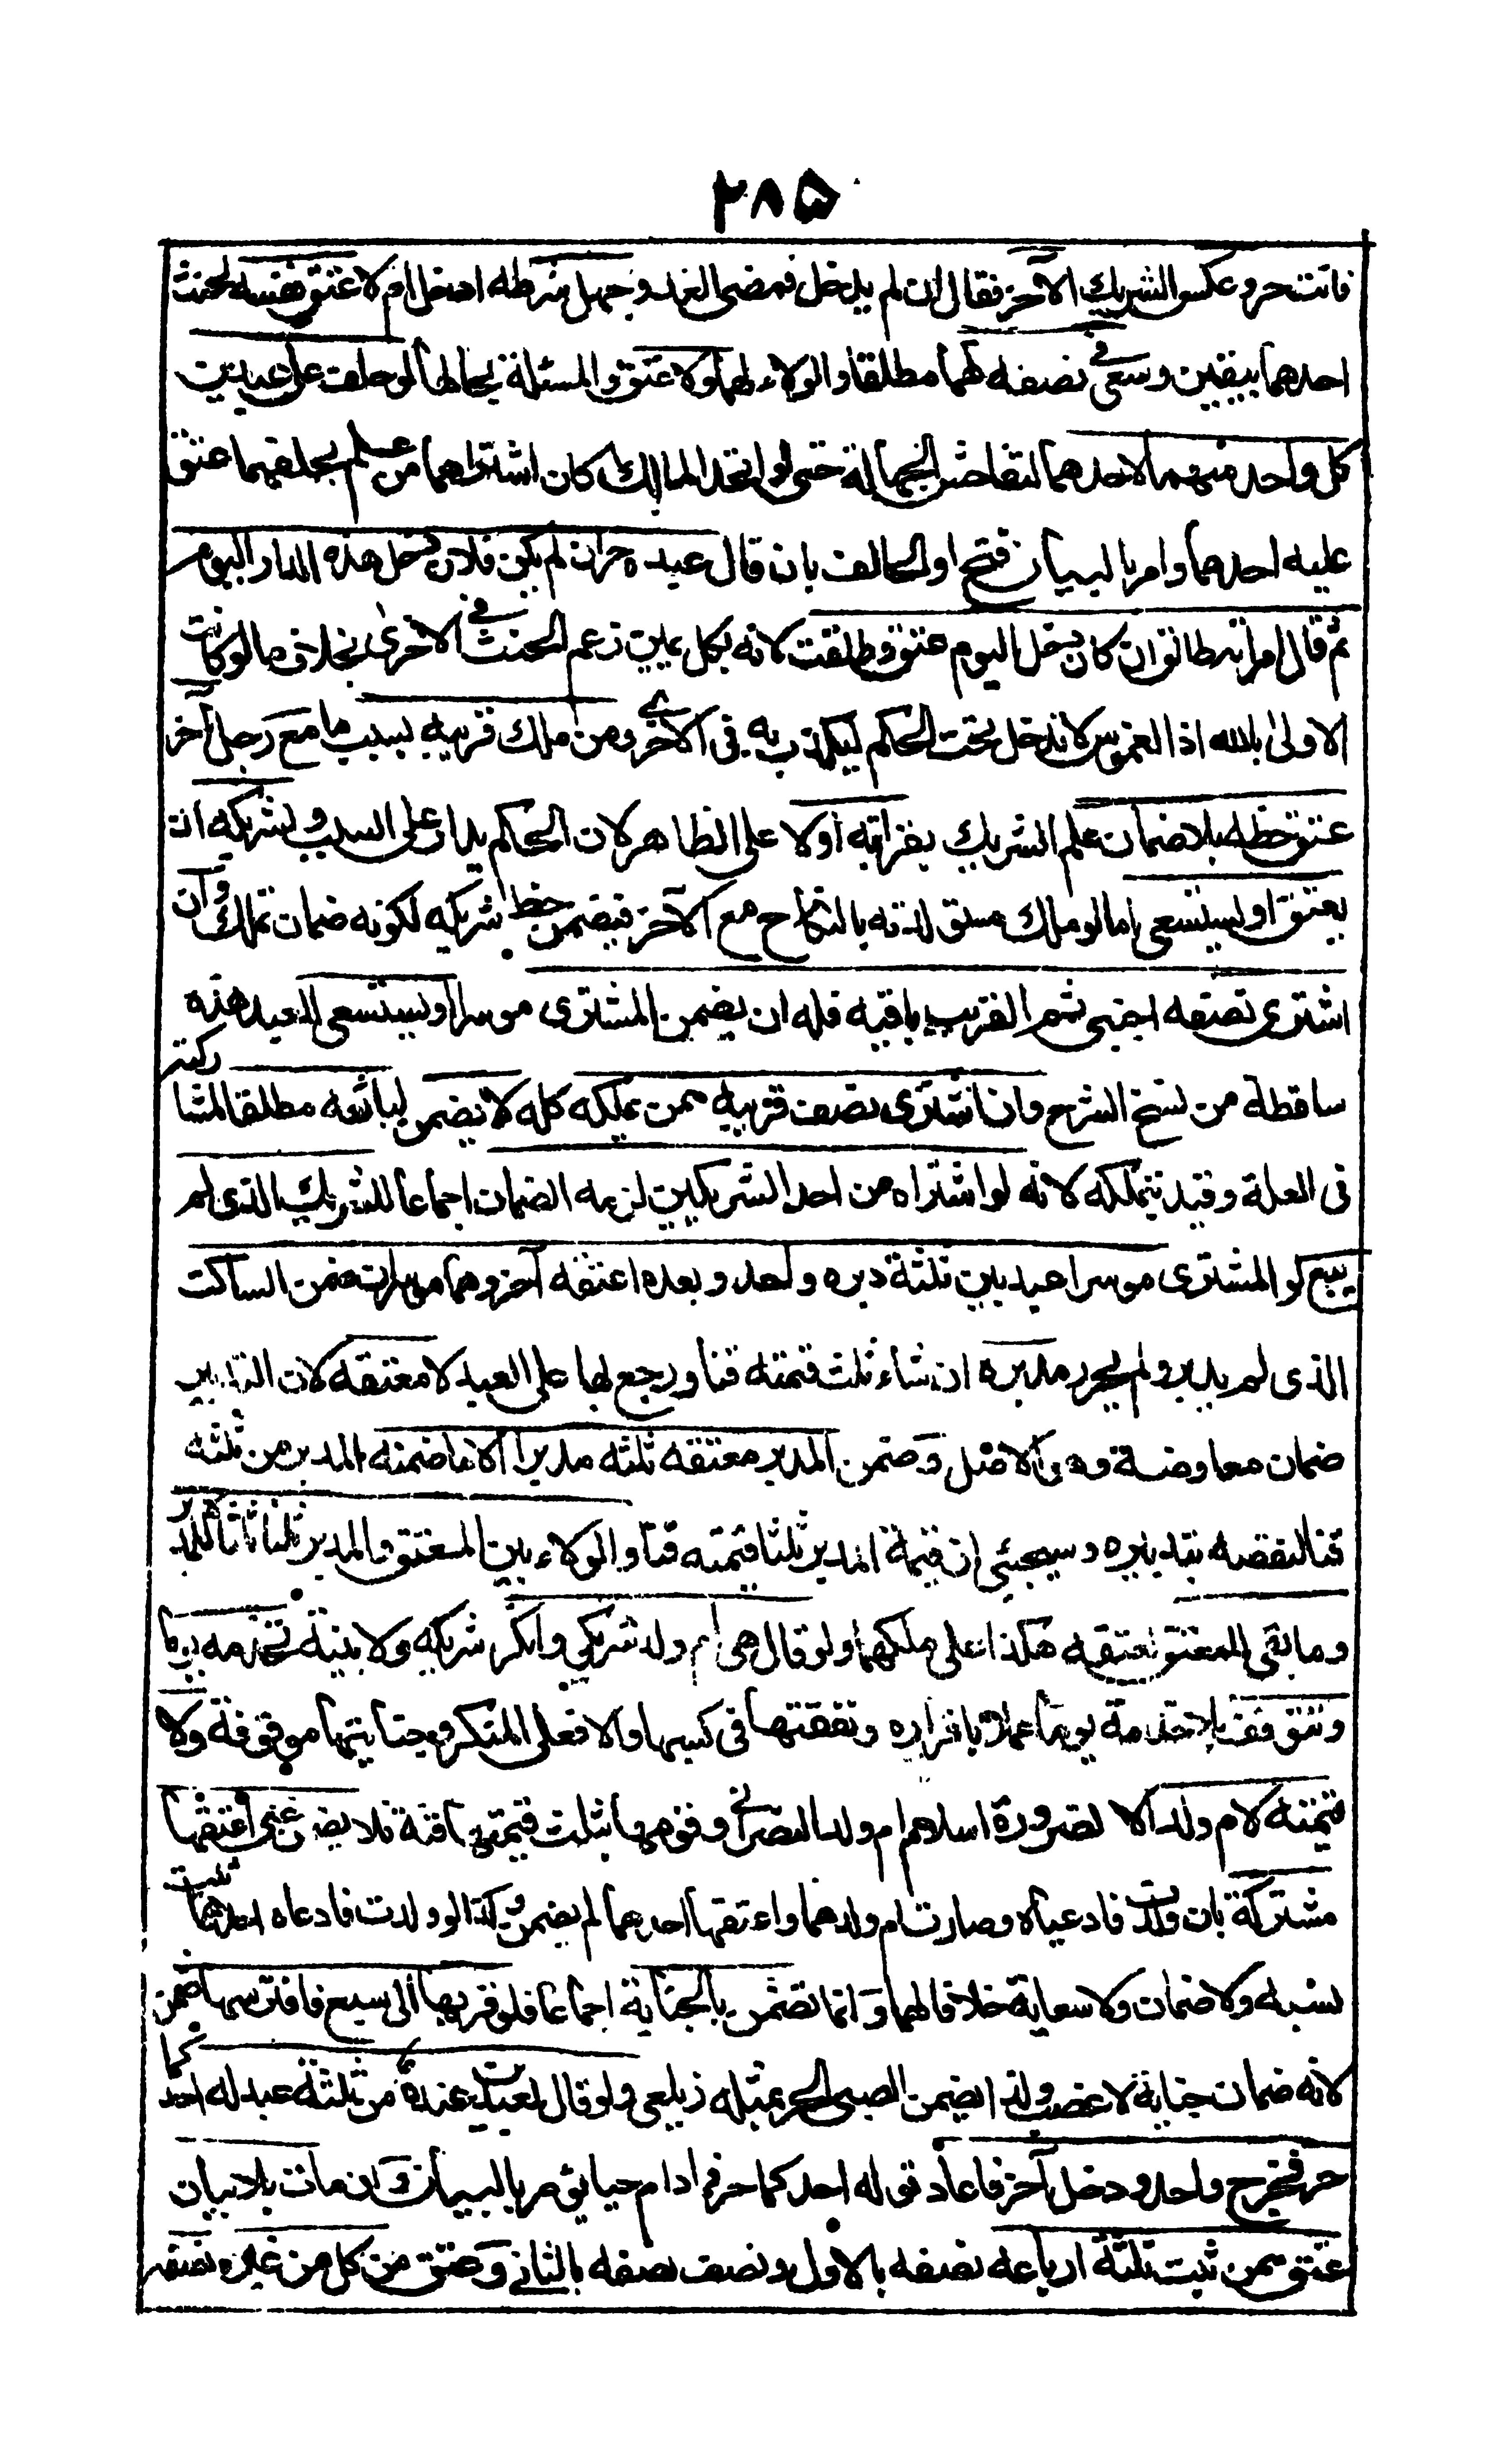 ٢٨٥
فانت حر وعكس الشريك الآخر فقال ان لم يدخل فمضى الغد وجهل شرطه ادخل ام لا عتق نصفه لحنث
احدهما بيقين وسعى في نصفه لهما مطلقا والولاء لهما ولا عتق والمسئلة بحالها لو حلف على عبدين
كل واحد منهما لاحدهما لتفاحش الجهالة حتى لو اتحد المالك كان اشتراهما من علم بحلفهما عتق
عليه احدهما وامر بالبيان فتح او الحالف بان قال عبده حر ان لم يكن فلان دخل هذه الدار اليوم
ثم قال امراته طالق ان كان دخل اليوم عتق وطلقت لانه بكل يمين زعم الحنث في الاخرى بخلاف ما لو كانت
الاولى بالله اذ الغموس لا تدخل تحت الحكم ليكذب به في الاخرى ومن ملك قريبه بسبب ما مع رجل آخر
عتق حظه بلا ضمان علم الشريك بقرابته اولا على الظاهر لان الحكم يدار على السبب ولشريكه ان
يعتق او يستسعى اما لو ملك مستولدته بالنكاح مع الآخر فيضمن حظ شريكه لكونه ضمان تملك وان
اشترى نصفه اجنبى ثم القريب باقيه فله ان يضمن المشترى موسرا او يستسعى العبد هذه
ساقطة من نسخ الشرح وان اشترى نصف قريبه ممن يملكه كله لا يضمن لبائعه مطلقا لمشاركته
فى العلة وقيد بتملكه لانه لو اشتراه من احد الشريكين لزمه الضمان اجماعا للشريك الذى لم
يبع لو المشترى موسرا عبد بين ثلثة دبره واحد وبعده اعتقه آخر وهما موسران ضمن الساكت
الذى لم يدبر ولم يحرر مدبره ان شاء ثلث قيمته قنا ورجع بها على العبد لا معتقه لان التدبير
ضمان معاوضة وهى الاصل وضمن المدبر معتقه ثلثه مدبرا لا ما ضمنه المدبر من ثلثه
قنا لنقصه بتدبيره وسيجئ ان قيمة المدبر ثلثا قيمته قنا والولاء بين المعتق والمدبر ثلثا ثلثاه للمدبر
وما بقى للمعتق لعتقه هكذا على ملكهما ولو قال هى ام ولد شريكي وانكر شريكه ولا بينة تخدمه يوما
وتتوقف بلا خدمة يوما عملا باقراره ونفقتها فى كسبها والا فعلى المنكر وجنايتها موقوفة ولا
قيمة لام ولد الا لضرورة اسلام ام ولد النصرانى وقومها بثلث قيمتها قنة فلا يضمن غنى اعتقها
مشتركة بان ولدت فادعياه وصارت ام ولدهما واعتقها احدهما لم يضمن وكذا لو ولدت فادعاه احدهما ثبت
نسبه ولا ضمان ولا سعاية خلافا لهما وانما تضمن بالجناية اجماعا فلو قربها الى سبع فافترسها ضمن
لانه ضمان جناية لا غصب ولذا يضمن الصبى الحر بمثله زيلعى ولو قال لعبدين عنده من ثلثة عبد له احدكما
حر فخرج واحد ودخل آخر فاعاد قوله احدكما حر فما دام حيا يؤمر بالبيان وان مات بلا بيان
عتق ممن ثبت ثلثة ارباعه نصفه بالاول ونصف نصفه بالثانى وعتق من كل من غيره نصفه